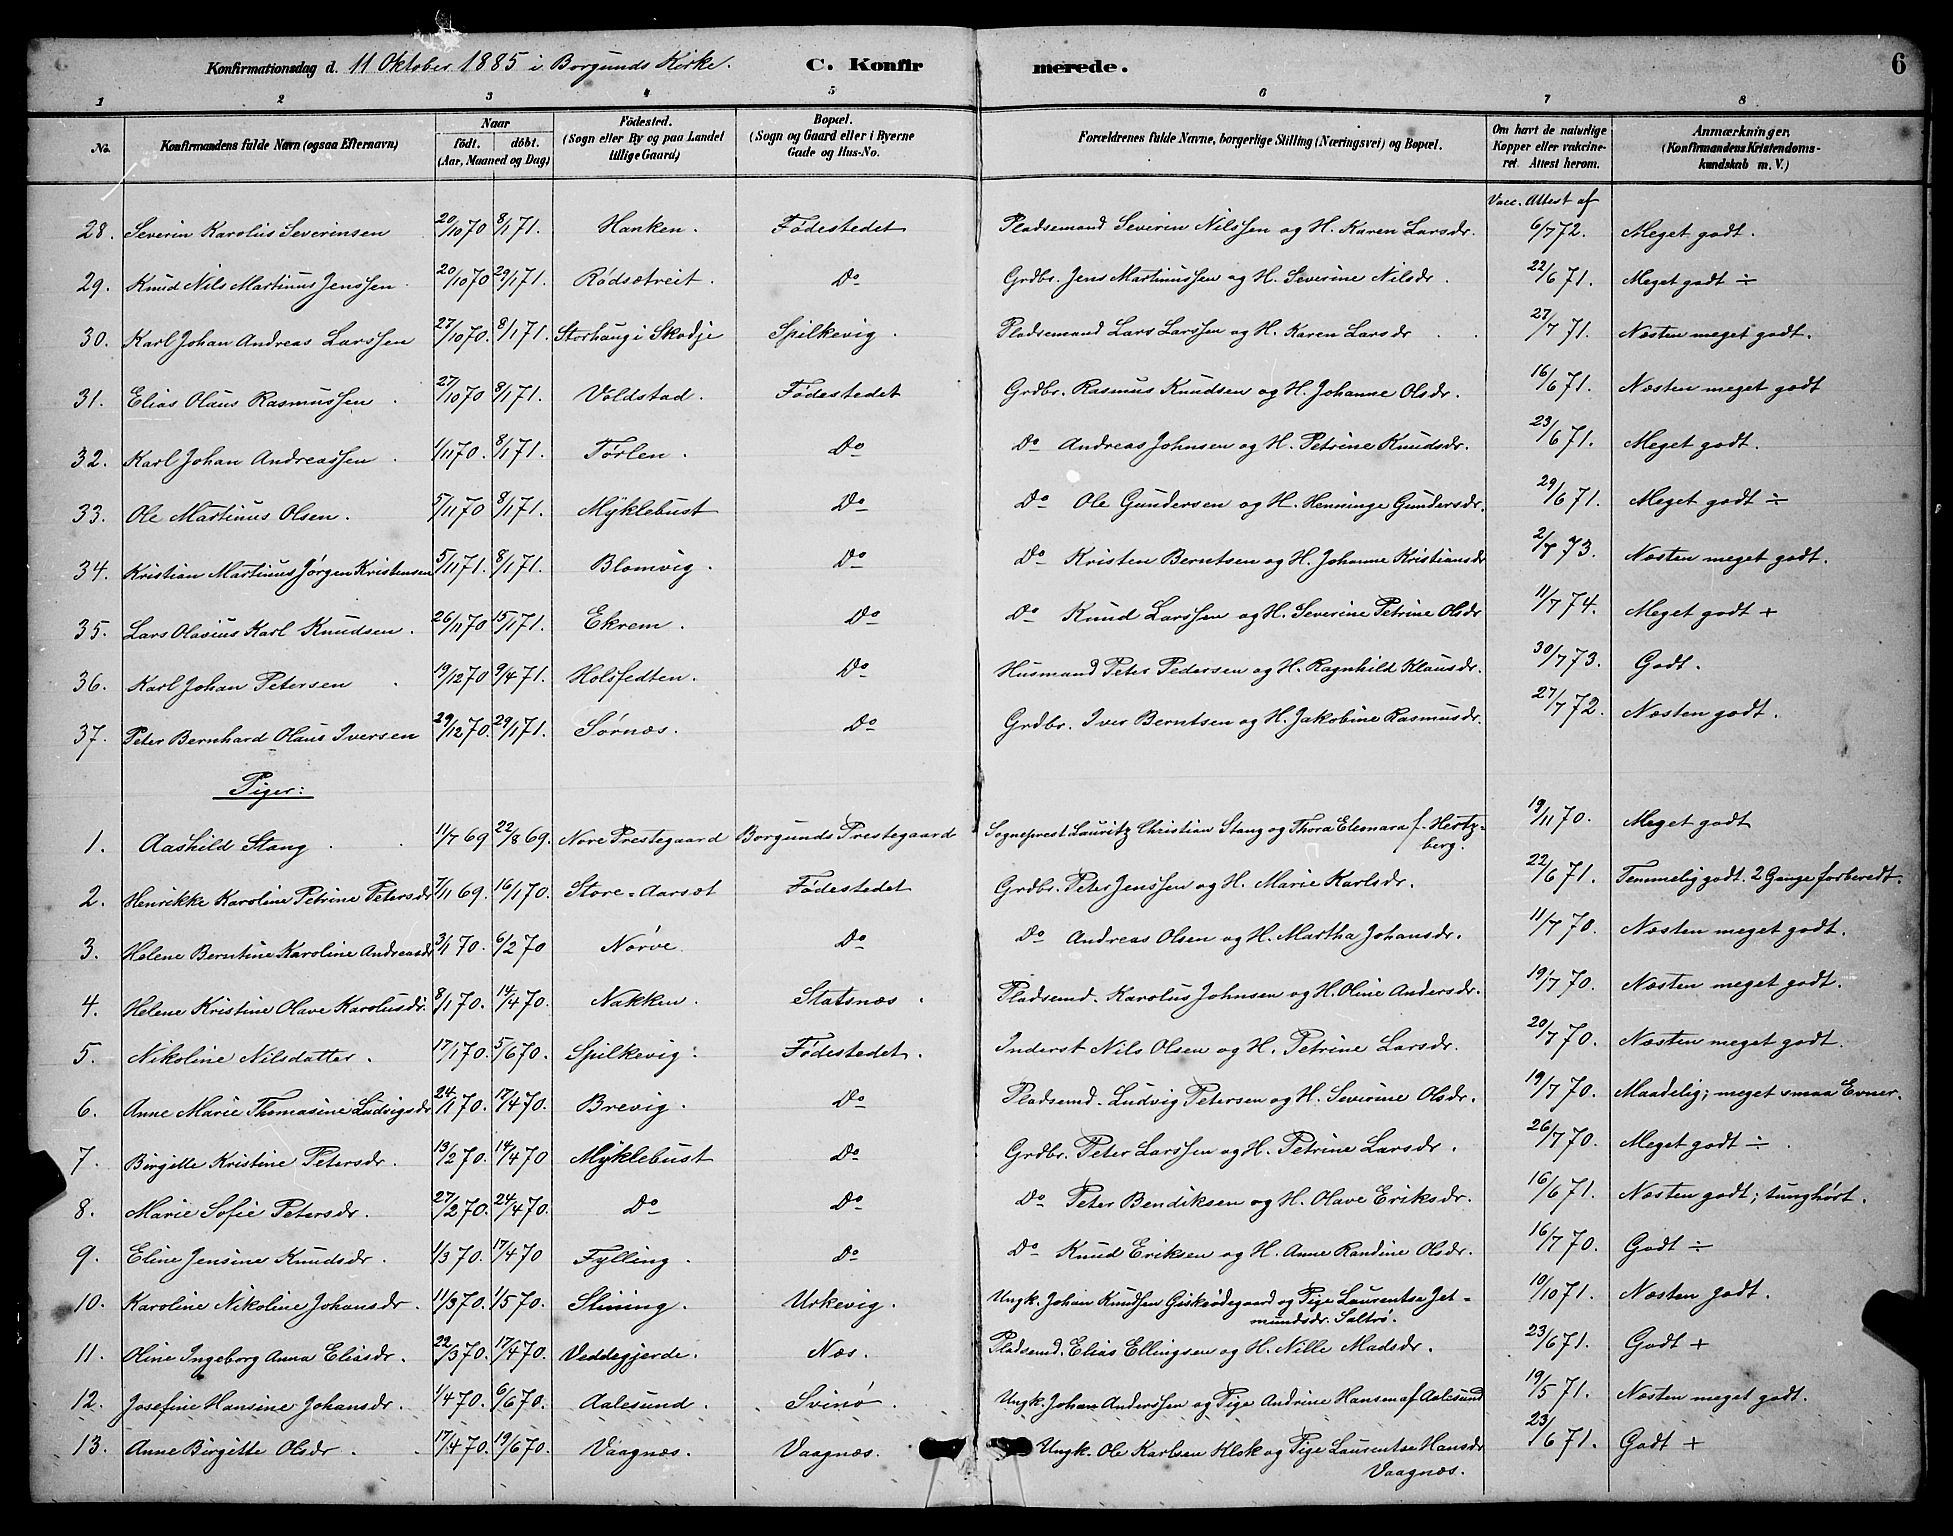 Konfirmationsdag d. 11 Oktober 1885 i Borgunds Kirke. C. Konfirmerede. 6
1 2 3 4 5 6 7 8
No. Konfirmandens fulde Navn (ogsaa Efternavn) Naar födt. döbt. (Aar, Maaned og Dag) Födested. (Sogn eller By og paa Landet tillige Gaard) Bopæl. (Sogn og Gaard eller i Byerne Gade og Hus-No. Forældrenes fulde Navne, borgerlige Stilling (Næringsvei) og Bopæl. Om havt de naturlige Kopper eller vakcineret. Attest herom. Anmærkninger. (Konfirmandens Kristendomskundskab m. V.)
Vacc. Attest af
28. Severin Karolius Severinsen 20/10 70 8/1 71. Hanken. Fødestedet Pladsemand Severin Nilssen og H. Karen Larsdr. 6/7 72. Meget godt.
29. Knud Nils Martinus Jenssen 20/10 70 29/1 71. Rødsætreit. Do Grdbr. Jens Martinussen og H. Severine Nilsdr. 22/6 71. Meget godt ÷
30. Karl Johan Andreas Larssen 27/10 70. 8/1 71. Storhaug i Skodje Spilkevig. Pladsemand Lars Larssen og H. Karen Larsdr 27/7 71. Næsten meget godt.
31. Elias Olaus Rasmussen 27/10 70 8/1 71. Voldstad. Fødestedet Grdbr. Rasmus Knudsen og H. Johanne Olsdr. 16/6 71. Næsten meget godt
32. Karl Johan Andreassen 1/11 70. 8/1 71. Tørlen. Do Do Andreas Johnsen og H. Petrine Knudsdr. 23/6 71. Meget godt.
33. Ole Martinus Olsen. 5/11 70 8/1 71. Myklebust Do Do Ole Gundersen og H. Henninge Gundersdr. 29/6 71. Meget godt ÷
34. Kristian Martinus Jørgen Kristensen 5/11 71. 8/1 71. Blomvig. Do Do Kristen Berntsen og H. Johanne Kristiansdr 2/7 73. Næsten meget godt.
35. Lars Olasius Karl Knudsen. 26/11 70 15/1 71. Ekrem. Do Do Knud Larssen og H. Severine Petrine Olsdr 11/7 74. Meget godt +
36. Karl Johan Petersen 19/12 70 9/4 71. Holsfedten. Do Husmand Peter Pedersen og H. Ragnhild Klausdr. 30/7 73. Godt.
37. Peter Bernhard Olaus Iversen 29/12 70. 29/1 71. Sørnæs. Do Grdbr. Iver Berntsen og H. Jakobine Rasmusdr. 27/7 72. Næsten godt.
Piger:
1. Aashild Stang 11/7 69 22/8 69. Nore Prestegaard Borgunds Prestegaard Sogneprest Lauritz Christian Stang og Thora Eleonara f. Hertzberg. 19/11 70. Meget godt
2. Henrikke Karoline Petrine Petersdr 7/11 69. 16/1 70. Store-Aarsæt Fødestedet Grdbr. Peter Jenssen og H. Marie Karlsdr. 22/6 71. Temmelig godt. 2 Gange forberedt.
3. Helene Berntine Karoline Andreasdr 3/1 70. 6/2 70 Nørve. Do Do Andreas Olsen og H. Martha Johansdr. 11/7 70. Næsten meget godt.
4. Helene Kristine Olave Karolusdr. 8/1 70. 14/4 70. Nakken. Statsnæs. Pladsemd. Karolus Johnsen og H. Oline Andersdr. 19/7 70. Næsten meget godt.
5. Nikoline Nilsdatter. 17/1 70. 5/6 70. Spilkevig. Fødestedet. Inderst Nils Olsen og H. Petrine Larsdr. 20/7 70. Næsten meget godt.
6. Anne Marie Thomasine Ludvigsdr 24/1 70. 17/4 70. Brevig. Do Pladsemd. Ludvig Petersen og H. Severine Olsdr. 19/7 70. Maadelig; meget smaa Evner.
7. Birgitte Kristine Petersdr. 13/2 70. 14/4 70 Myklebust Do Grdbr. Peter Larssen og H. Petrine Larsdr. 26/7 70. Meget godt ÷
8. Marie Sofie Petersdr. 27/2 70. 24/4 70. Do Do Do Peter Bendiksen og H. Olave Eriksdr. 16/6 71. Næsten godt; tunghørt.
9. Eline Jensine Knudsdr. 1/3 70. 17/4 70 Fylling. Do Do Knud Eriksen og H. Anne Randine Olsdr. 16/7 70. Godt ÷
10. Karoline Nikoline Johansdr. 11/3 70. 1/5 70. Slinning. Urkevig. Ungk. Johan Knudsen Giskeødegaard og Pige Laurentse Jetmundsdr. Saltrø. 10/10 71. Næsten godt.
11. Oline Ingeborg Anna Eliasdr. 22/3 70. 17/4 70. Veddegjerde. Næs. Pladsemd. Elias Ellingsen og H. Nille Madsdr. 23/6 71. Godt +
12. Josefine Hansine Johansdr. 1/4 70. 6/6 70. Aalesund. Svinø. Ungk. Johan Anderssen og Pige Andrine Hansen af Aalesund 19/5 71. Næsten meget godt.
13. Anne Birgitte Olsdr. 17/4 70. 19/6 70. Vaagnæs. Vaagnæs. Ungk. Ole Karlsen Klok og Pige Laurentse Hansdr Vaagnæs. 23/6 71. Godt +